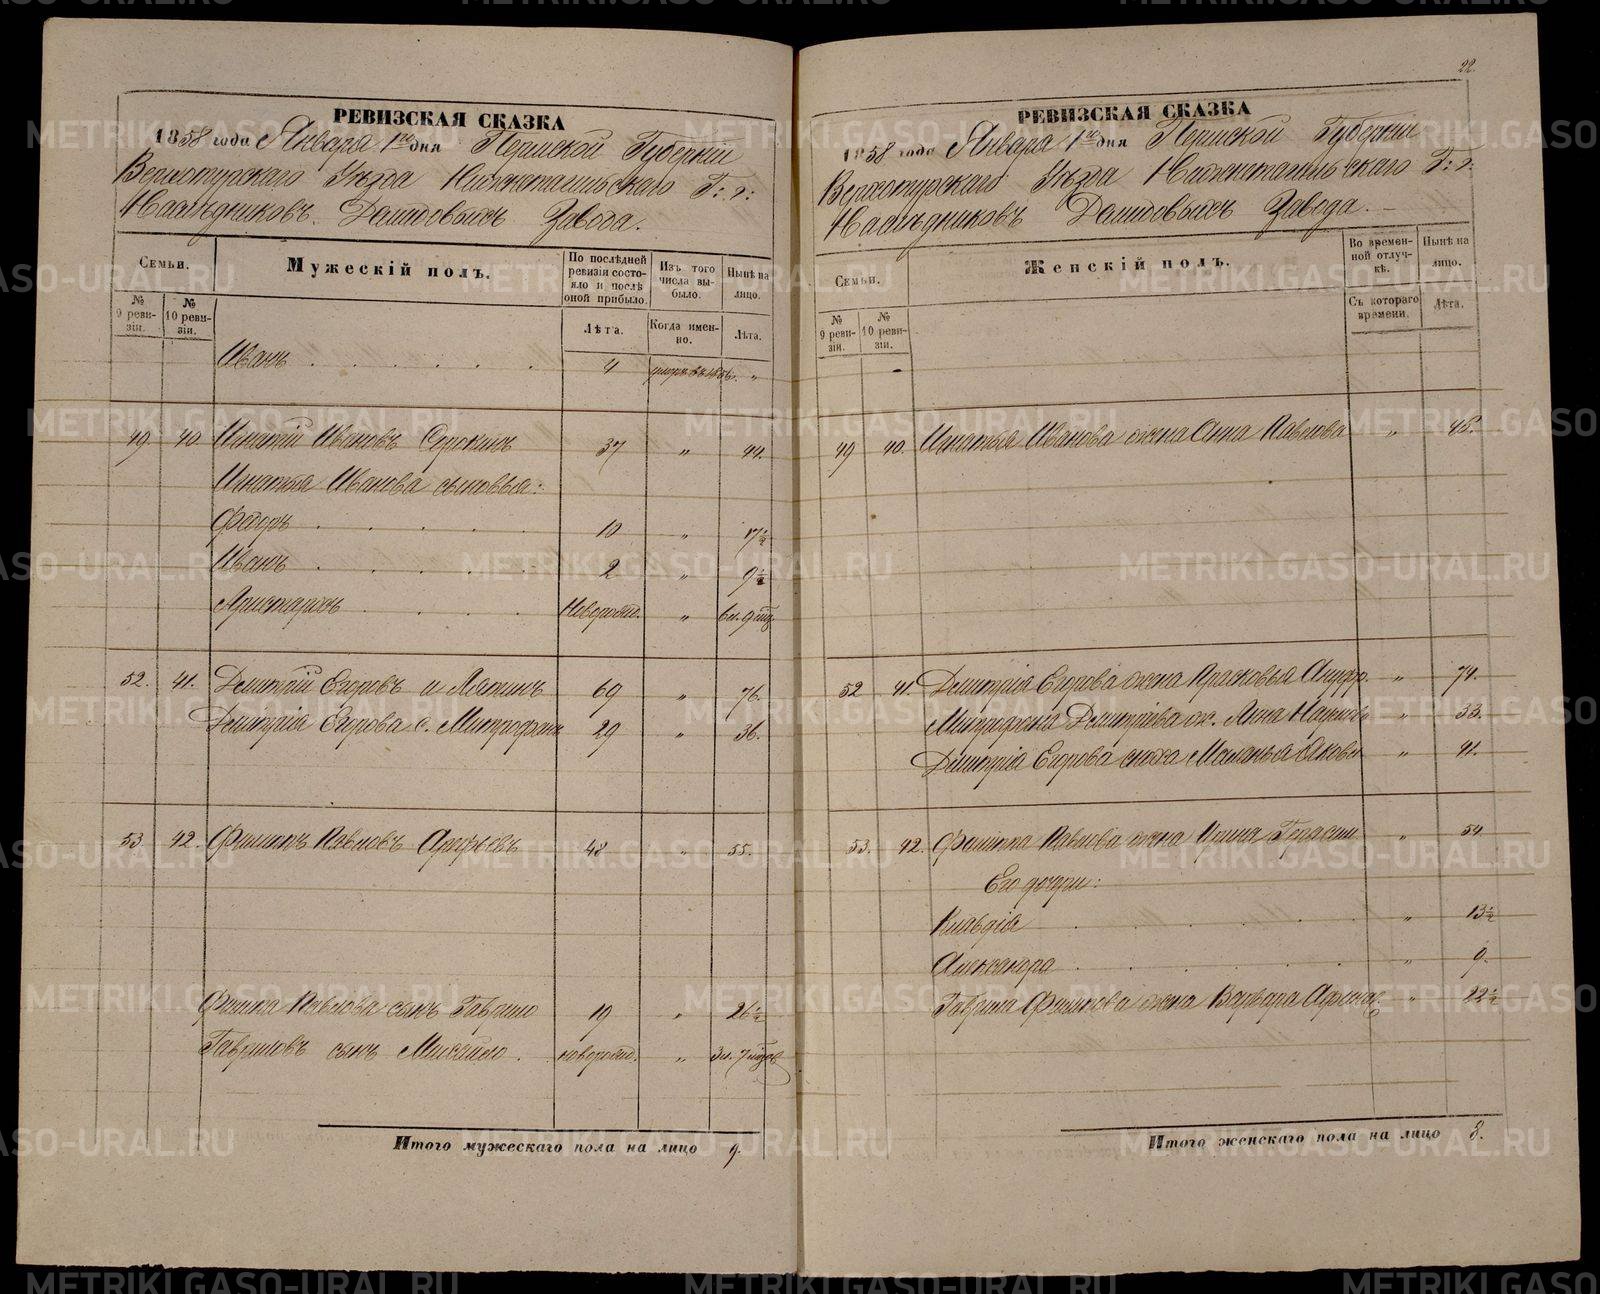 22.
РЕВИЗСКАЯ СКАЗКА
1858 года Января 1го дня Пермской Губернiи
Верхотурскаго Уѣзда Нижнетагильскаго Г: г:
Наслѣдниковъ Демидовыхъ Завода.
Семьи.
Мужескій полъ.
По послѣдней ревизіи состояло и послѣ оной прибыло.
Изъ того числа выбыло.
Нынѣ на лицо.
№ 9 ревизіи.
№ 10 ревизіи.
Лѣта.
Когда именно.
Лѣта.
Иванъ . . . . . . 4 1856 "
49 40. Игнатій Ивановъ Сорокинъ 37 " 44.
Игнатья Иванова сыновья:
Федоръ . . . . . 10 " 17½
Иванъ . . . . . 2 " 9½
Аристархъ . . . . Новорожд. "
52. 41. Дмитрій Егоровъ 69 " 76.
Дмитрія Егорова с. Митрофанъ 29 " 36.
53 42. Филипъ Павловъ 48 " 55.
Филипа Павлова сынъ Гаврило 19 " 26½
Гавриловъ сынъ Михайло . новорожд. "
Итого мужескаго пола на лицо 9.
РЕВИЗСКАЯ СКАЗКА
1858 года Января 1го дня Пермской Губерніи
Верхотурскаго Уѣзда Нижнетагильскаго Г: г:
Наслѣдниковъ Демидовыхъ Завода.
Семьи.
Женскій полъ.
Во временной отлучкѣ.
Нынѣ на лицо.
№ 9 ревизіи.
№ 10 ревизіи.
Съ котораго времени.
Лѣта.
49 40. Игнатья Иванова жена Анна Павлова "
52 41. Дмитрія Егорова жена Прасковья "
Митрофана Дмитріева ж. Анна Наумова " 33.
Дмитрія Егорова сноха Маланья Яковл. " 41.
53. 42. Филипа Павлова жена Ирина Герасим. " 54.
Его дочери:
Клавдія . . . . " 13½
Александра . . . . " 9.
Гаврила Филипова жена Варвара " 22½
Итого женскаго пола на лицо 8.
METRIKI.GASO-URAL.RU